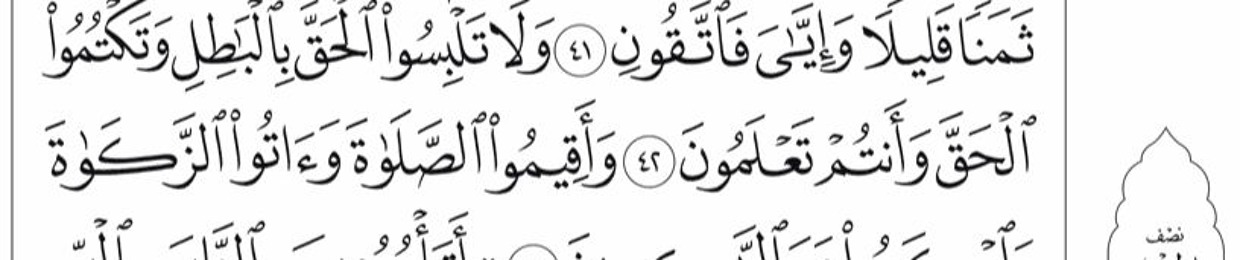 ثَمَنًا قَلِيلًا وَإِيَّٰىَ فَٱتَّقُونِ ٤١ وَلَا تَلۡبِسُواْ ٱلۡحَقَّ بِٱلۡبَٰطِلِ وَتَكۡتُمُواْ
ٱلۡحَقَّ وَأَنتُمۡ تَعۡلَمُونَ ٤٢ وَأَقِيمُواْ ٱلصَّلَوٰةَ وَءَاتُواْ ٱلزَّكَوٰةَ
نصف